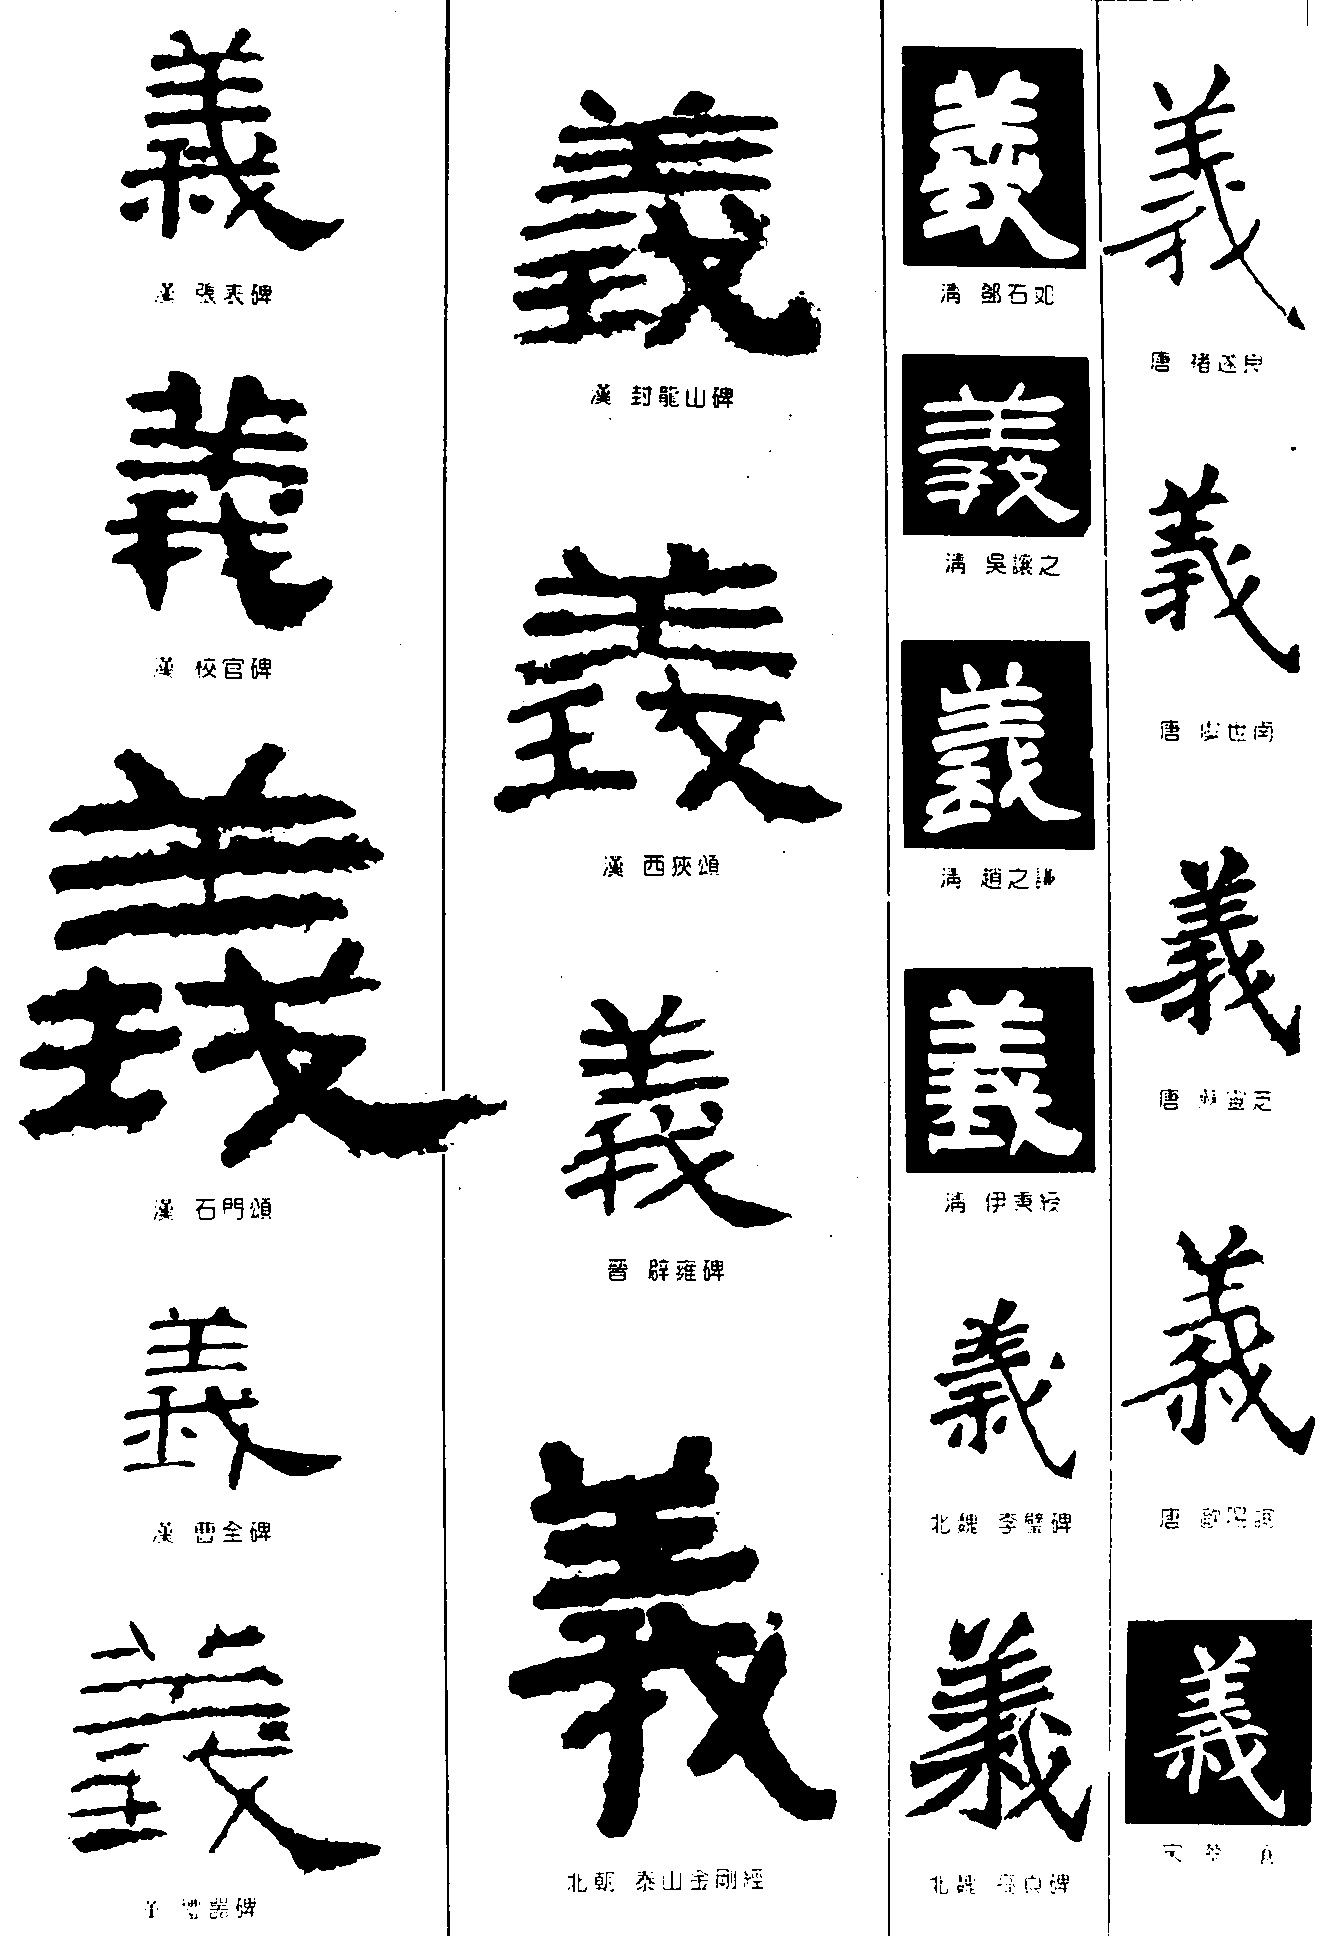 義
唐 褚遂良
義
唐 虞世南
義
唐
義
唐 歐陽詢
義
義
清 鄧石如
義
清 吳讓之
義
清 趙之謙
義
清 伊秉綬
義
北魏 李璧碑
義
北魏 碑
義
漢 封龍山碑
義
漢 西狹頌
義
晉 辟雍碑
義
北朝 泰山金剛經
義
漢 張表碑
義
漢 校官碑
義
漢 石門頌
義
漢 曹全碑
義
禮器碑